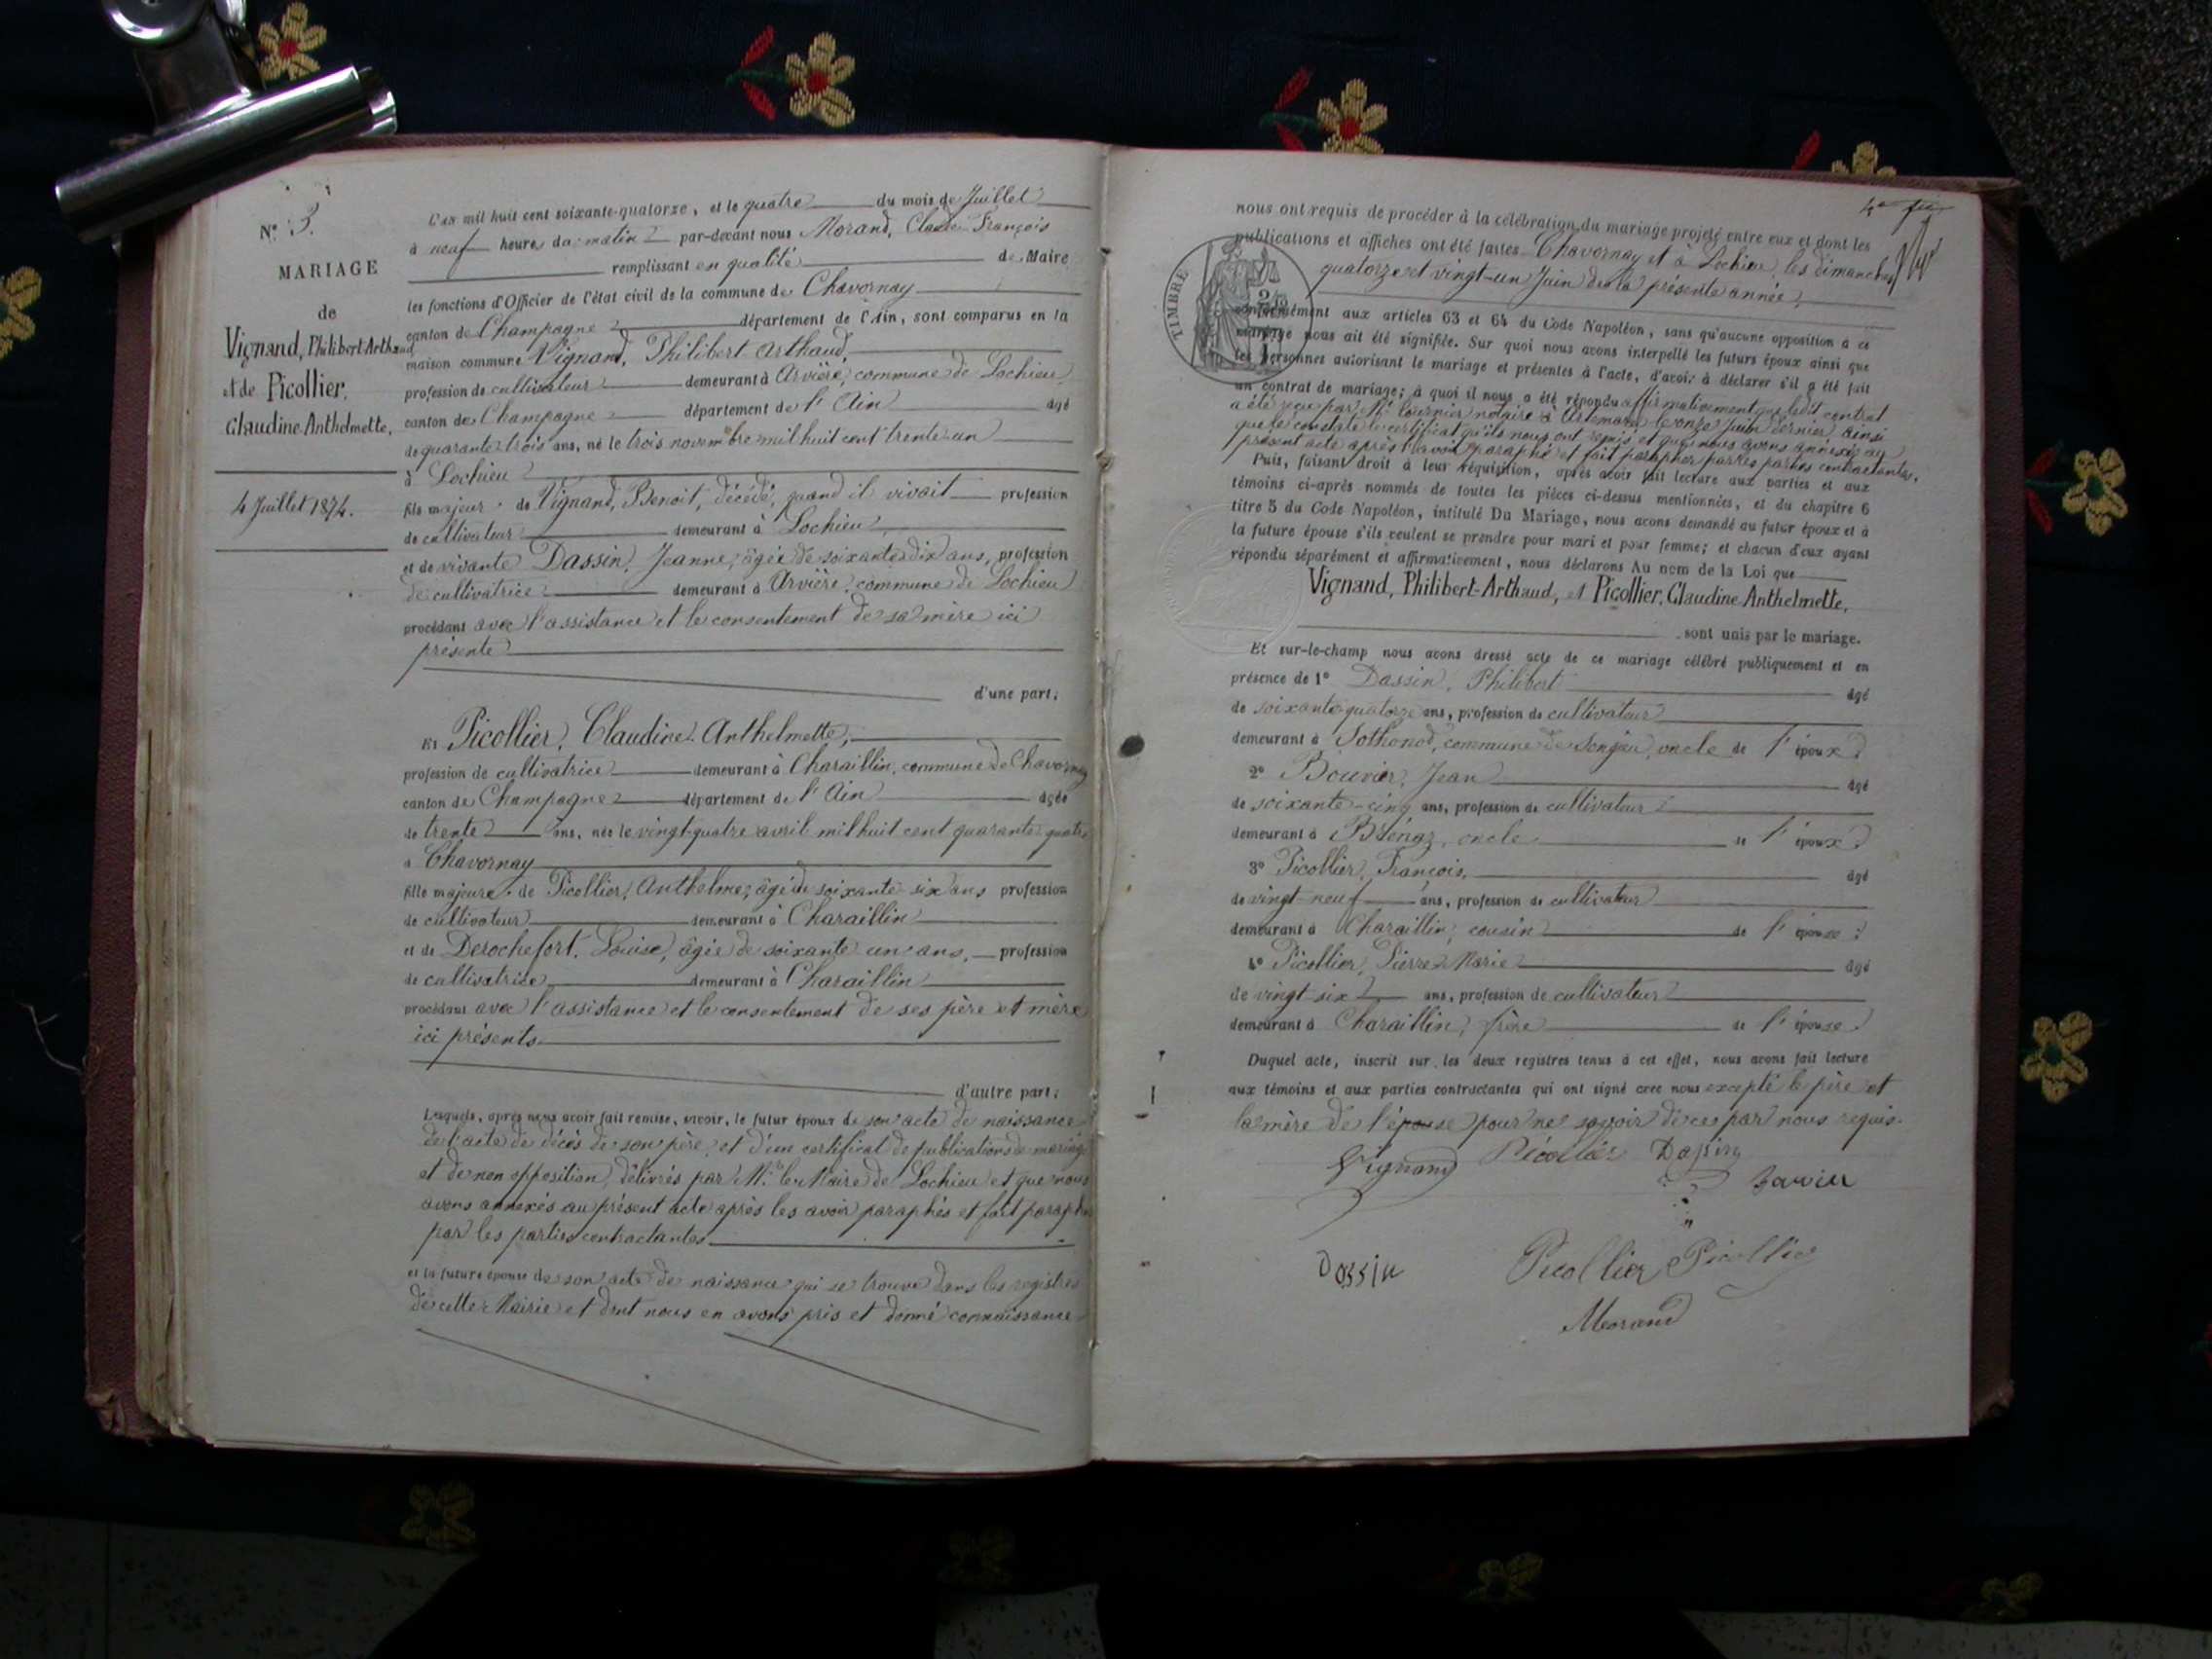 N° 3.
MARIAGE
de
Vignand, Philibert Arthaud
et de Picollier,
Claudine Anthelmette.
4 Juillet 1874.
L'an mil huit cent soixante-quatorze, et le quatre du mois de Juillet
à neuf heures du matin par-devant nous Morand, Claude François
remplissant en qualité de Maire
les fonctions d'Officier de l'état civil de la commune de Chavornay
canton de Champagne département de l'Ain, sont comparus en la
maison commune Vignand, Philibert Arthaud,
profession de cultivateur demeurant à Arvière, commune de Lochieu
canton de Champagne département de l'Ain âgé
de quarante trois ans, né le trois novembre mil huit cent trente un
à Lochieu
fils majeur de Vignand, Benoit, décédé, quand il vivait profession
de cultivateur demeurant à Lochieu
et de vivante Dassin, Jeanne, âgée de soixante dix ans, profession
de cultivatrice demeurant à Arvière, commune de Lochieu
procédant avec l'assistance et le consentement de sa mère ici
présente
d'une part;
Et Picollier, Claudine Anthelmette,
profession de cultivatrice demeurant à Charaillin, commune de Chavornay
canton de Champagne département de l'Ain âgée
de trente ans, née le vingt-quatre avril mil huit cent quarante quatre
à Chavornay
fille majeure de Picollier, Anthelme, âgé de soixante six ans profession
de cultivateur demeurant à Charaillin
et de Derochefort, Louise, âgée de soixante un ans, profession
de cultivatrice demeurant à Charaillin
procédant avec l'assistance et le consentement de ses père et mère
ici présents
d'autre part;
Lesquels, après nous avoir fait remise, savoir, le futur époux de son acte de naissance
de l'acte de décès de son père, et d'un certificat de publications de mariage
et de non opposition, délivrés par Mr. le Maire de Lochieu et que nous
avons annexés au présent acte après les avoir paraphés et fait parapher
par les parties contractantes
et la future épouse de son acte de naissance qui se trouve dans les registres
de cette Mairie et dont nous en avons pris et donné connaissance
nous ont requis de procéder à la célébration du mariage projeté entre eux et dont les
publications et affiches ont été faites Chavornay et à Lochieu, les dimanches
quatorze et vingt-un Juin de la présente année,
TIMBRE
conformément aux articles 63 et 64 du Code Napoléon, sans qu'aucune opposition à ce
mariage nous ait été signifiée. Sur quoi nous avons interpellé les futurs époux ainsi que
les personnes autorisant le mariage et présentes à l'acte, d'avoir à déclarer s'il a été fait
un contrat de mariage; à quoi il nous a été répondu affirmativement que ledit contrat
a été reçu par Me. notaire à Artemare le onze Juin dernier ainsi
que le constate le certificat qu'ils nous ont remis et que nous avons annexé au
présent acte après l'avoir paraphé et fait parapher par les parties contractantes.
Puis, faisant droit à leur réquisition, après avoir fait lecture aux parties et aux
témoins ci-après nommés de toutes les pièces ci-dessus mentionnées, et du chapitre 6
titre 5 du Code Napoléon, intitulé Du Mariage, nous avons demandé au futur époux et à
la future épouse s'ils veulent se prendre pour mari et pour femme; et chacun d'eux ayant
répondu séparément et affirmativement, nous déclarons Au nom de la Loi que
Vignand, Philibert-Arthaud, et Picollier, Claudine Anthelmette,
sont unis par le mariage.
Et sur-le-champ nous avons dressé acte de ce mariage célébré publiquement et en
présence de 1° Dassin, Philibert âgé
de soixante quatorze ans, profession de cultivateur
demeurant à Sothonod, commune de Songieu, oncle de l'époux
2° Bouvier, Jean âgé
de soixante-cinq ans, profession de cultivateur
demeurant à Brénaz, oncle de l'époux
3° Picollier, François, âgé
de vingt-neuf ans, profession de cultivateur
demeurant à Charaillin, cousin de l'épouse
4° Picollier, Pierre Marie âgé
de vingt six ans, profession de cultivateur
demeurant à Charaillin, frère de l'épouse
Duquel acte, inscrit sur les deux registres tenus à cet effet, nous avons fait lecture
aux témoins et aux parties contractantes qui ont signé avec nous excepté le père et
la mère de l'épouse pour ne savoir de ce par nous requis.
Vignand Picollier Dassin
Bouvier
Dassin Picollier Picollier
Morand